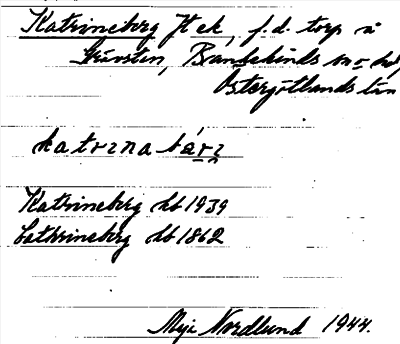 Katrineberg f.d. torp å
Grävsten, Bankekinds sn o hd,
Östergötlands län
katrinabärj
Katrineberg kb 1939
Cathrineberg kb 1862
Nordlund 1944.